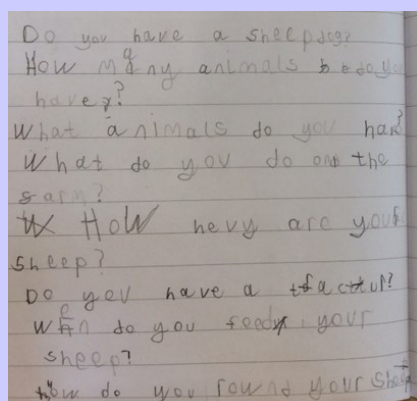 Do you have a sheepdog?
How many animals do you
have?
What animals do you hav?
What do you do on the
farm?
How hevy are your
sheep?
Do you have a
When do you feed your
sheep?
how do you round your sheep